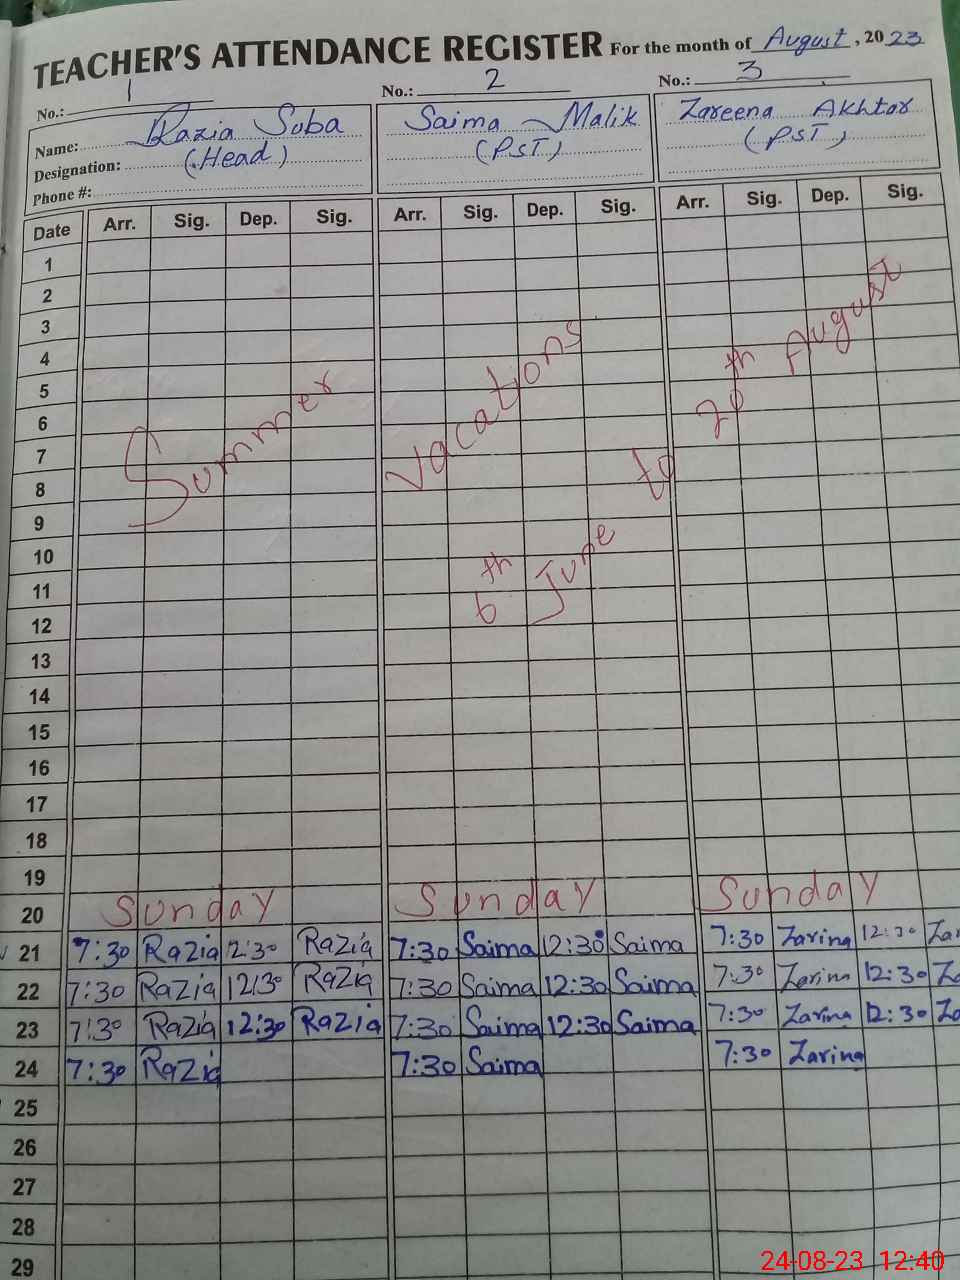 TEACHER'S ATTENDANCE REGISTER For the month of August, 2023
No.: 1 No.: 2 No.: 3
Name: Razia Suba Saima Malik Zareena Akhtar
Designation: (Head) (P.S.T) (P.S.T)
Phone #:
Date Arr. Sig. Dep. Sig. Arr. Sig. Dep. Sig. Arr. Sig. Dep. Sig.
1
2
3
4
5
6
7
8
9
10
11
12
13
14
15
16
17
18
19
Summer Vacations
6th June to 20th August
20 Sunday Sunday Sunday
21 7:30 Razia 12:30 Razia 7:30 Saima 12:30 Saima 7:30 Zarina 12:30 Zar
22 7:30 Razia 12:30 Razia 7:30 Saima 12:30 Saima 7:30 Zarina 12:30 Za
23 7:30 Razia 12:30 Razia 7:30 Saima 12:30 Saima 7:30 Zarina 12:30 Za
24 7:30 Razia 7:30 Saima 7:30 Zarina
25
26
27
28
29
24-08-23 12:40